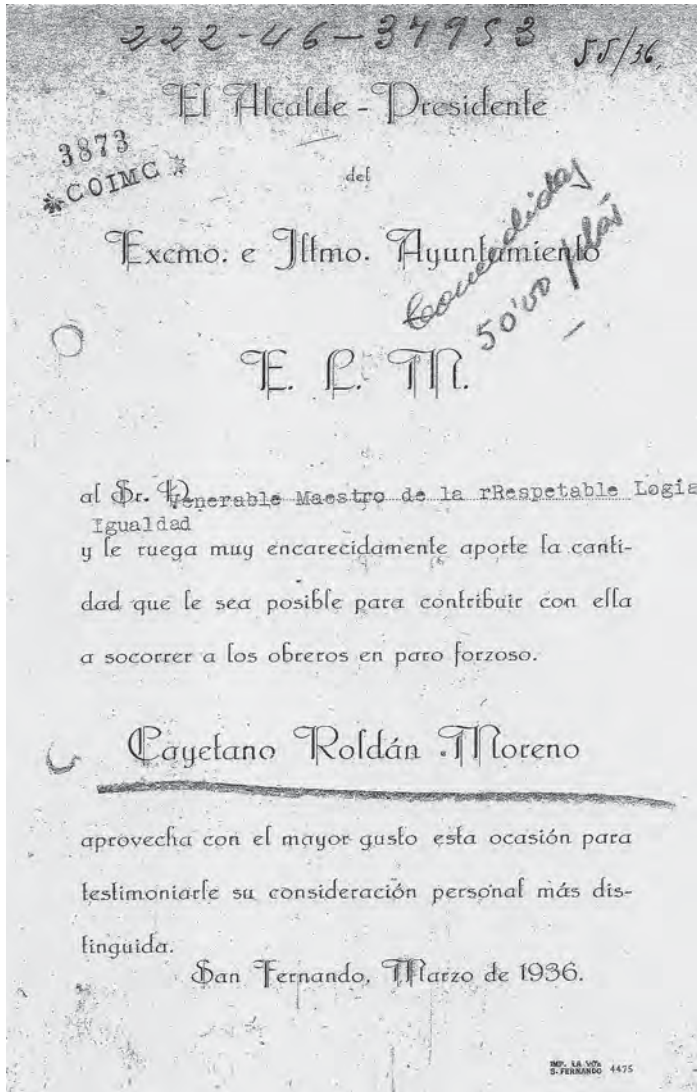 222-46-37953
55/36.
El Alcalde - Presidente
3873
*COIMC*
del
Excmo. e Iltmo. Ayuntamiento
Concedidas
50'00
E. L. M.
al Sr. Venerable Maestro de la rRespetable Logia
Igualdad
y le ruega muy encarecidamente aporte la canti-
dad que le sea posible para contribuir con ella
a socorrer a los obreros en paro forzoso.
Cayetano Roldán Moreno
aprovecha con el mayor gusto esta ocasión para
testimoniarle su consideración personal más dis-
tinguida.
San Fernando, Marzo de 1936.
IMP. LA VOZ
S. FERNANDO 4475